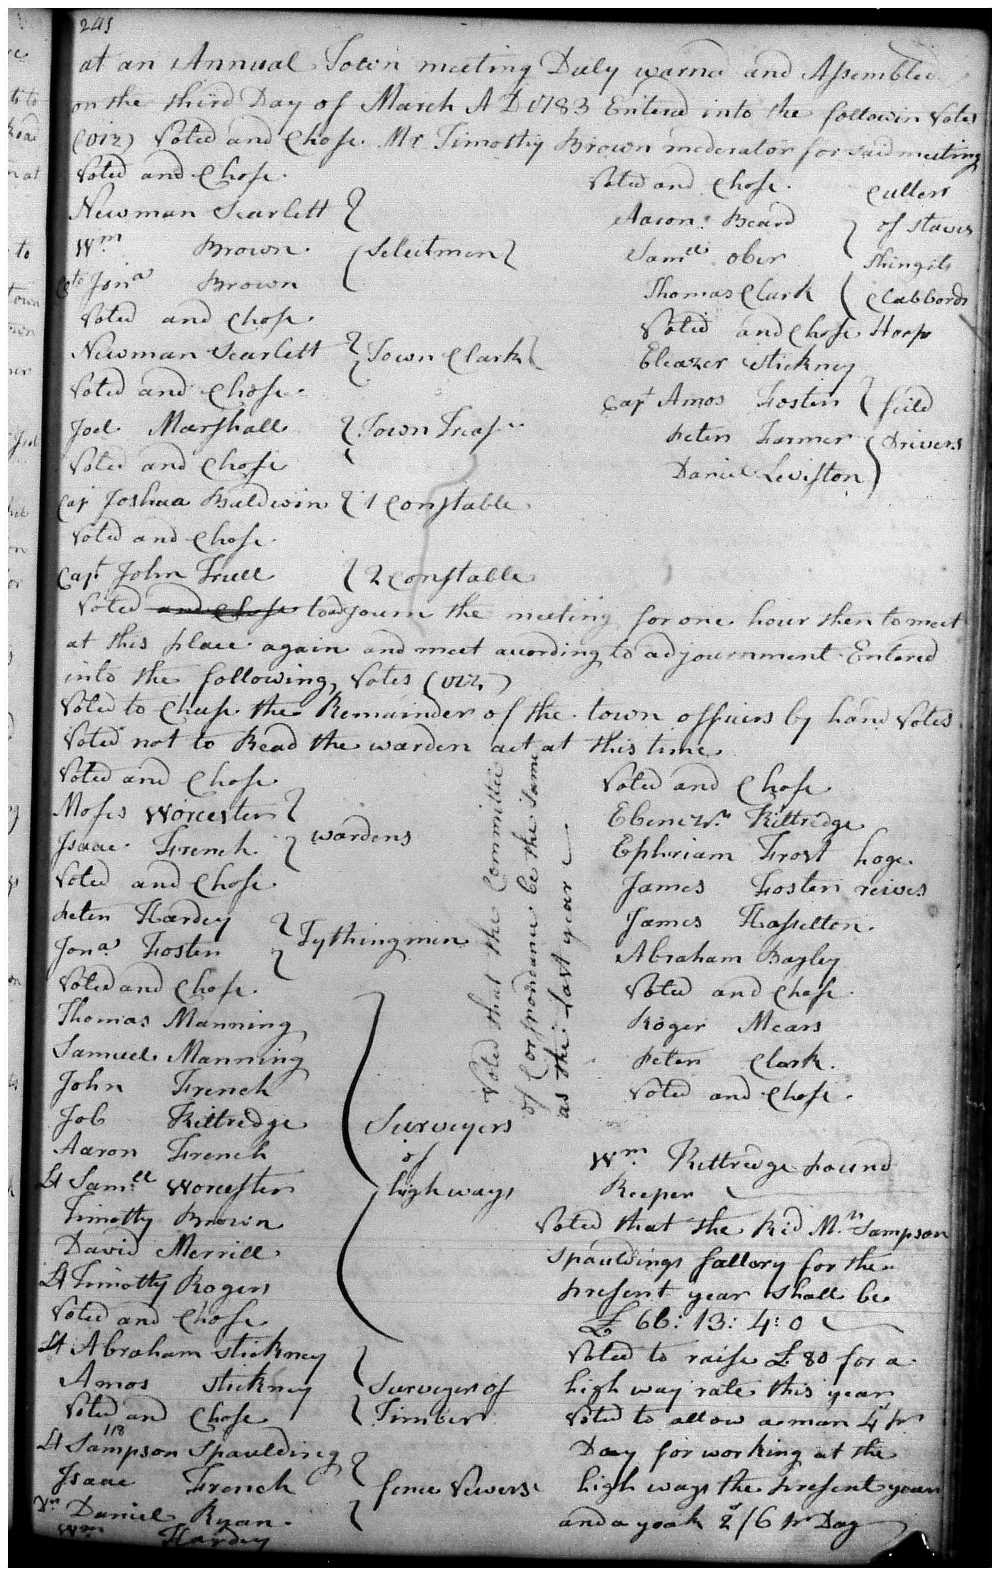 245
at an Annual Town meeting Duly warned and Assembled
on the third Day of March A D 1783 Entered into the followin Votes
(viz) Voted and Chose Mr Timothy Brown mederator for said meeting
Voted and Chose
Newman Scarlett
Wm Brown
Jona Brown
Selectmen
Voted and Chose
Newman Scarlett
Town Clark
Voted and Chose
Joel Marshall
Town Treas
Voted and Chose
Cap Joshua Baldwin
1 Constable
Voted and Chose
Capt John Truell
2 Constable
Voted and Chose
Aaron Beard
Samll ober
Thomas Clark
Cullers
of staves
shingils
Clabbords
Hoop
Voted and Chose
Eleazer Stickney
Capt Amos Foster
Peter Farmer
Daniel Leviston
feild
Drivers
Voted and Chose to adjourn the meeting for one hour then to meet
at this place again and meet acording to adjournment Entered
into the following Votes (viz)
Voted to Chuse the Remainder of the town officers by hand Votes
Voted not to Read the warden act at this time
Voted and Chose
Moses Worcester
Isaac French
wardens
Voted and Chose
Peter Hardey
Jona Foster
Tythingmen
Voted and Chose
Thomas Manning
Samuel Manning
John French
Job Kittredge
Aaron French
Lt Samll Worcester
Timothy Brown
David Merrill
Lt Timothy Rogers
Surveyers
of
high ways
Voted and Chose
Lt Abraham Stickney
Amos Stickney
Surveyers of
Timber
Voted and Chose
118
Lt Sampson Spaulding
Isaac French
Dn Daniel Ryan
Wm Hardey
fence Vewers
Voted that the Committee
of Correspondance be the same
as the last year
Voted and Chose
Ebenezr Kittredge
Ephriam Frost
James Foster
James Hasselton
Abraham Bayley
hoge
reives
Voted and Chose
Roger Mears
Peter Clark
Voted and Chose
Wm Kittredge pound
Keeper
Voted that the Red Mr Sampson
Spauldings sallery for the
present year shall be
£ 66: 13: 4: 0
Voted to raise £ 80 for a
high way rate this year
Voted to allow a man 4s pr
Day for working at the
high ways the present year
and a yoak 2s/6 pr Day